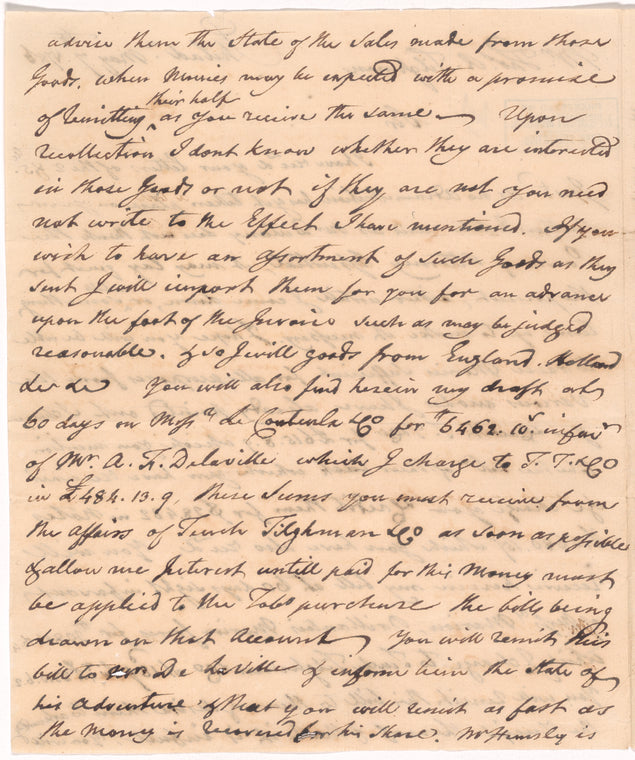 advise them the State of the Sales made from those
Goods. when Monies may be expected with a promise
their half
of Remitting ^ as you receive the same — Upon
recollection I dont know whether they are interested
in those Goods or not if they are not you need
not write to the Effect I have mentioned. If you
wish to have an assortment of such Goods as they
sent I will import them for you for an advance
upon the foot of the Invoice such as may be judged
reasonable. & so I will goods from England. Holland
&c &c You will also find herein my draft at
60 days on Messrs Le Couteulx &Co for tt6462.10s. in favr
of Mr. A. F. Delaville which I charge to T. T. &Co
in £484.13.9, these Sums you must receive from
the affairs of Tench Tilghman &Co as soon as possible
& allow me Interest untill paid for this Money must
be applied to the Tobo purchase the bills being
drawn on that Account, You will remit this
bill to Mr De laville & inform him the State of
his Adventure & that you will remit as fast as
the Money is recovered for his Share. Mr Hemsley is